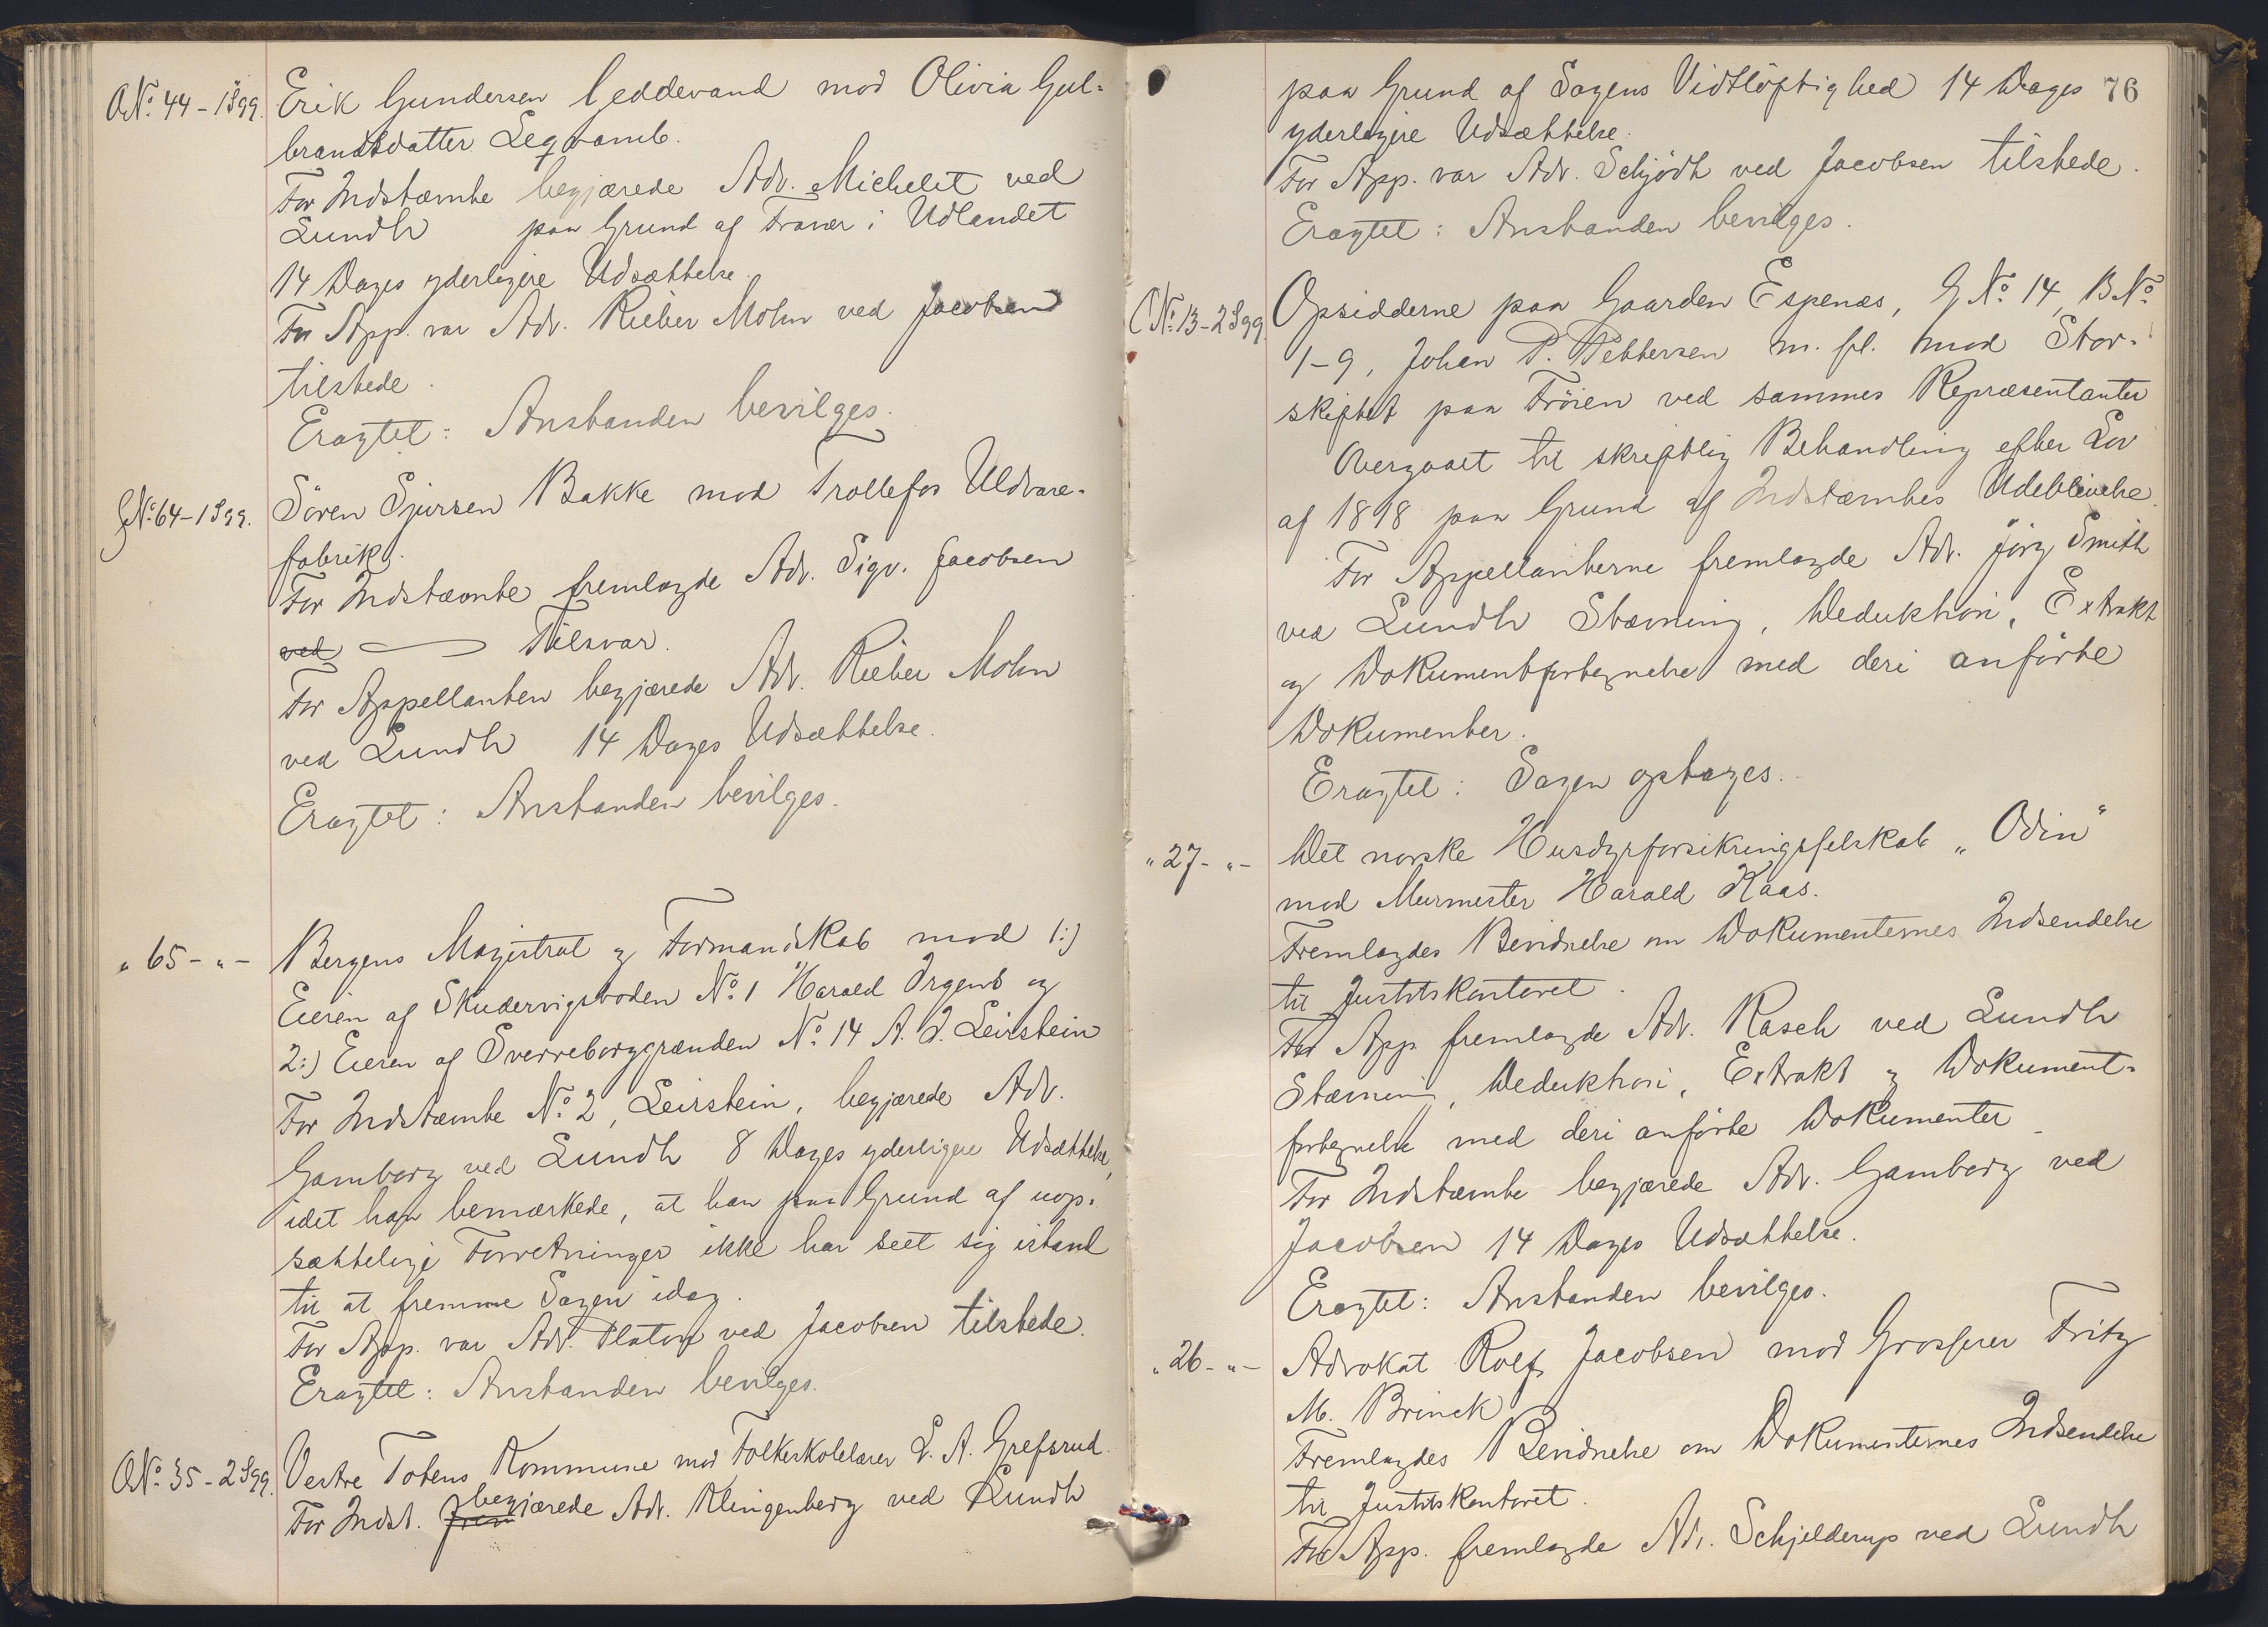 O.No. 44 - 1899.
Erik Gundersen Geddevand mod Olivia Gul-
brandsdatter Leqvamb.
For Indstævnte begjærede Adv. Michelet ved
Lundh paa Grund af Fravær i Udlandet
14 Dages yderligere Udsættelse.
For App. var Adv. Rieber Mohn ved Jacobsen
tilstede.
Eragtet: Anstanden bevilges.
No. 64 - 1899.
Sören Sjursen Bakke mod Trollefos Uldvare-
fabrik.
For Indstævnte fremlagde Adv. Sigv. Jacobsen
ved — Tilsvar.
For Appellanten begjærede Adv. Rieber Mohn
ved Lundh 14 Dages Udsættelse.
Eragtet: Anstanden bevilges.
" 65 - " -
Bergens Magistrat og Formandskab mod 1:)
Eieren af Skudervigsboden No. 1 Harald Irgens og
2:) Eieren af Sverreborggrænden No. 14 A. J. Leirstein
For Indstævnte No. 2, Leirstein, begjærede Adv.
Gamborg ved Lundh 8 Dages yderligere Udsættelse,
idet han bemærkede, at han paa Grund af uop-
sættelige Forretninger ikke har seet sig istand
til at fremme Sagen idag.
For App. var Adv. Platou ved Jacobsen tilstede.
Eragtet: Anstanden bevilges.
O.No. 35 - 2899.
Vestre Totens Kommune mod Folkeskolelærer L. A. Grefsrud.
For Indst. frem begjærede Adv. Klingenberg ved Lundh
76
paa Grund af Sagens Vidtlöftighed 14 Dages
yderligere Udsættelse.
For App. var Adv. Schjödt ved Jacobsen tilstede.
Eragtet: Anstanden bevilges.
C No. 13 - 2899.
Opsidderne paa Gaarden Espenæs, G No. 14, B No.
1-9, Johan P. Pettersen m. fl. mod Stor-
skiftet paa Fröien ved sammes Repræsentanter
Overgaaet til skriftlig Behandling efter Lov
af 1818 paa Grund af Indstævntes Udeblivelse.
For Appellanterne fremlagde Adv. Jörg Smith
ved Lundh Stævning, Deduktion, Extrakt
og Dokumentfortegnelse med deri anförte
Dokumenter.
Eragtet: Sagen optages.
" 27 - " -
Det norske Husdyrforsikringsselskab „Odin"
mod Murmester Harald Kaas.
Fremlagdes Bevidnelse om Dokumenternes Indsendelse
til Justitskontoret.
For App. fremlagde Adv. Rasch ved Lundh
Stævning, Deduktion, Extrakt og Dokument-
fortegnelse med deri anförte Dokumenter
For Indstævnte begjærede Adv. Gamborg ved
Jacobsen 14 Dages Udsættelse.
Eragtet: Anstanden bevilges.
" 26 - " -
Advokat Rolf Jacobsen mod Grosserer Fritz
M. Brinck
Fremlagdes Bevidnelse om Dokumenternes Indsendelse
til Justitskontoret.
For App. fremlagde Adv. Schjelderup ved Lundh